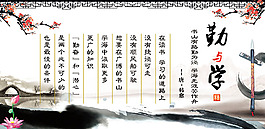 勤与学
书山有路勤为径
学海无涯苦作舟
——韩愈
在读书、学习的道路上
没有捷径可走
没有顺风船可驶
想要在广博的书山
学海中汲取更多
更广的知识
“勤奋”和“潜心”
是两个必不可少的
也是最佳的条件